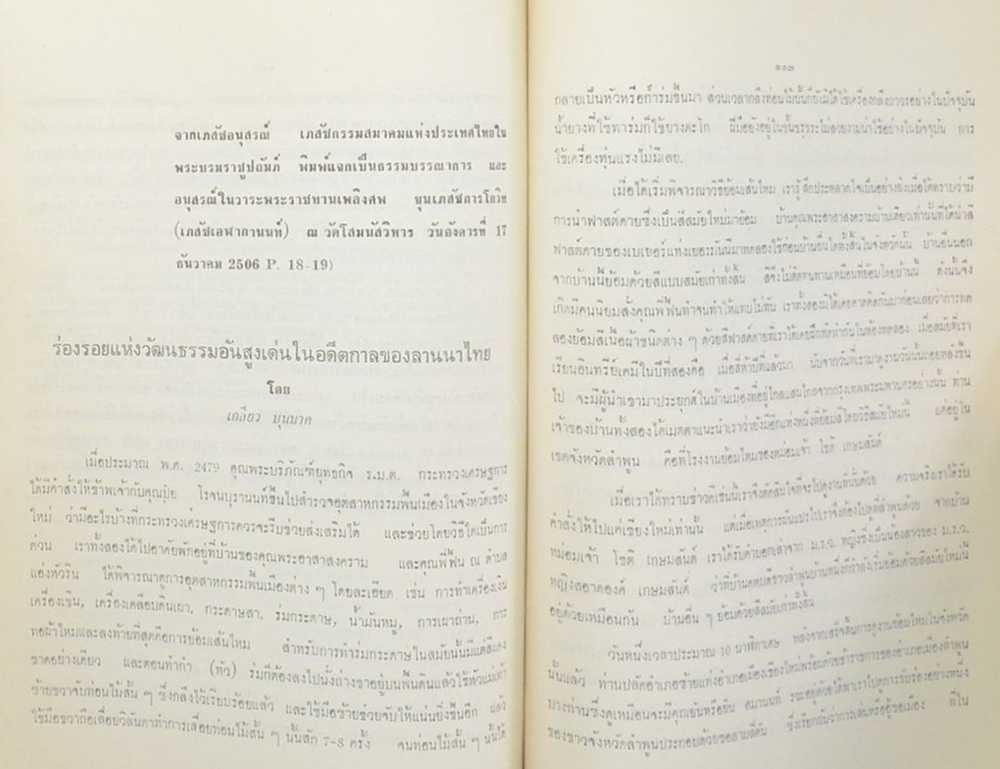 จากเภสัชอนุสรณ์ เภสัชกรรมสมาคมแห่งประเทศไทยใน
พระบรมราชูปถัมภ์ พิมพ์แจกเป็นธรรมบรรณาการ และ
อนุสรณ์ในวาระพระราชทานเพลิงศพ ขุนเภสัชการโกวิท
(เภสัชเลฬากานนท์) ณ วัดโสมนัสวิหาร วันอังคารที่ 17
ธันวาคม 2506 P. 18-19)
ร่องรอยแห่งวัฒนธรรมอันสูงเด่นในอดีตกาลของลานนาไทย
โดย
เกลียว บุนนาค
เมื่อประมาณ พ.ศ. 2479 คุณพระบริภัณฑ์ยุทธกิจ ร.ม.ต. กระทรวงเศรษฐการ
ได้มีคำสั่งให้ข้าพเจ้ากับคุณปุ๋ย โรจนบุรานนท์ขึ้นไปสำรวจอุตสาหกรรมพื้นเมืองในจังหวัดเชียง
ใหม่ ว่ามีอะไรบ้างที่กระทรวงเศรษฐการควรจะรีบช่วยส่งเสริมได้ และช่วยโดยวิธีใดเป็นการ
ด่วน เราทั้งสองได้ไปอาศัยพักอยู่ที่บ้านของคุณพระอาสาสงคราม และคุณพี่ฟื้น ณ ตำบล
แอ่งหัวริน ได้พิจารณาดูการอุตสาหกรรมพื้นเมืองต่าง ๆ โดยละเอียด เช่น การทำเครื่องเงิน
เครื่องเขิน, เครื่องเคลือบดินเผา, กระดาษสา, ร่มกระดาษ, น้ำมันหมู, การเผาถ่าน, การ
ทอผ้าไหมและลงท้ายที่สุดคือการย้อมเส้นไหม สำหรับการทำร่มกระดาษในสมัยนั้นมีแต่สีแดง
ชาดอย่างเดียว และตอนทำกำ (หัว) ร่มก็ต้องลงไปนั่งถ่างขาอยู่บนพื้นดินแล้วใช้หัวแม่เท้า
ซ้ายขวาจับท่อนไม้สั้น ๆ ซึ่งกลึงไว้เรียบร้อยแล้ว และใช้มือซ้ายช่วยจับให้แน่นยิ่งขึ้นอีก แล้ว
ใช้มือขวาถือเลื่อยวิลันดาทำการเลื่อยท่อนไม้สั้น ๆ นั้นสัก 7-8 ครั้ง จนท่อนไม้สั้น ๆ นั้นได้
๑๑๓
กลายเป็นหัวหรือกำร่มขึ้นมา ส่วนเวลากลึงท่อนไม้นั้นก็ยังมิได้ใช้เครื่องกลึงถาวรอย่างในปัจจุบัน
น้ำยางที่ใช้ทาร่มก็ใช้ยางตะโก ฝีมือยังอยู่ในขั้นขรุขระไม่สวยงามน่าใช้อย่างในปัจจุบัน การ
ใช้เครื่องทุ่นแรงไม่มีเลย.
เมื่อได้เริ่มพิจารณาวิธีย้อมเส้นไหม เรารู้สึกประหลาดใจเป็นอย่างยิ่งเมื่อได้ทราบว่ามี
การนำฟาสต์คายซึ่งเป็นสีสมัยใหม่มาย้อม บ้านคุณพระอาสาสงครามบ้านเดียวเท่านั้นที่ได้นำสี
ฟาสต์คายของเบเยอร์แห่งเยอรมันนีมาทดลองใช้ก่อนบ้านอื่นใดทั้งสิ้นในจังหวัดนั้น บ้านอื่นนอก
จากบ้านนี้ย้อมด้วยสีแบบสมัยเก่าทั้งสิ้น สีจึงไม่ติดทนทานเหมือนที่ย้อมโดยบ้านนี้ ดังนั้นจึง
เกิดมีคนนิยมสั่งคุณพี่ฟื้นทำจนทำให้แทบไม่ทัน เราทั้งสองมิได้เคยคาดคิดกันมาก่อนเลยว่าการทด
ลองย้อมสีเนื้อผ้าชนิดต่าง ๆ ด้วยสีฟาสต์คายที่เราได้เคยฝึกหัดทำกันในห้องทดลอง เมื่อสมัยที่เรา
เรียนอินทรีย์เคมีในปีที่สองคือ เมื่อสี่ห้าปีที่แล้วมา นับจากวันที่เรามาดูงานวันนั้นถอยหลังขึ้น
ไป จะมีผู้นำเอามาประยุกต์ในบ้านเมืองที่อยู่ไกลแสนไกลจากกรุงเทพพระมหานครอย่างนั้น ท่าน
เจ้าของบ้านทั้งสองได้เมตตาแนะนำเราว่ายังมีอีกแห่งหนึ่งที่ย้อมสีโดยวิธีสมัยใหม่นี้ แต่อยู่ใน
เขตจังหวัดลำพูน คือที่โรงงานย้อมไหมของหม่อมเจ้า โชติ เกษมสันต์
เมื่อเราได้ทราบข่าวดีเช่นนี้เราจึงตัดสินใจที่จะไปดูงานที่นั่นด้วย ความจริงเราได้รับ
คำสั่งให้ไปแค่เชียงใหม่เท่านั้น แต่เมื่อเหตุการณ์ผันแปรไปเราจึงต้องไปดูที่ลำพูนด้วย จากบ้าน
หม่อมเจ้า โชติ เกษมสันต์ เราได้รับคำบอกเล่าจาก ม.ร.ว. หญิงซึ่งเป็นน้องสาวของ ม.ร.ว.
หญิงสอาดองค์ เกษมสันต์ ว่าที่บ้านคหบดีชาวลำพูนบ้านหนึ่งก็กำลังเริ่มย้อมด้วยสีสมัยใหม่นี้
อยู่ด้วยเหมือนกัน บ้านอื่น ๆ ย้อมด้วยสีสมัยเก่าทั้งสิ้น
วันหนึ่งเวลาประมาณ 10 นาฬิกาเศษ หลังจากเสร็จสิ้นการดูงานย้อมไหมในจังหวัด
นั้นแล้ว ท่านปลัดอำเภอซ้ายแห่งอำเภอเมืองเชียงใหม่พร้อมด้วยข้าราชการของอำเภอเมืองลำพูน
บางท่านซึ่งดูเหมือนจะมีคุณยันหรือยิ้น สมานนท์ รวมอยู่ด้วยได้พาเราไปดูการขับร้องอย่างหนึ่ง
ของชาวจังหวัดลำพูนประกอบด้วยซอสามสี่คัน ซึ่งเรียกกันว่าการเล่นหรือผู้ขอเมือง ที่ใน